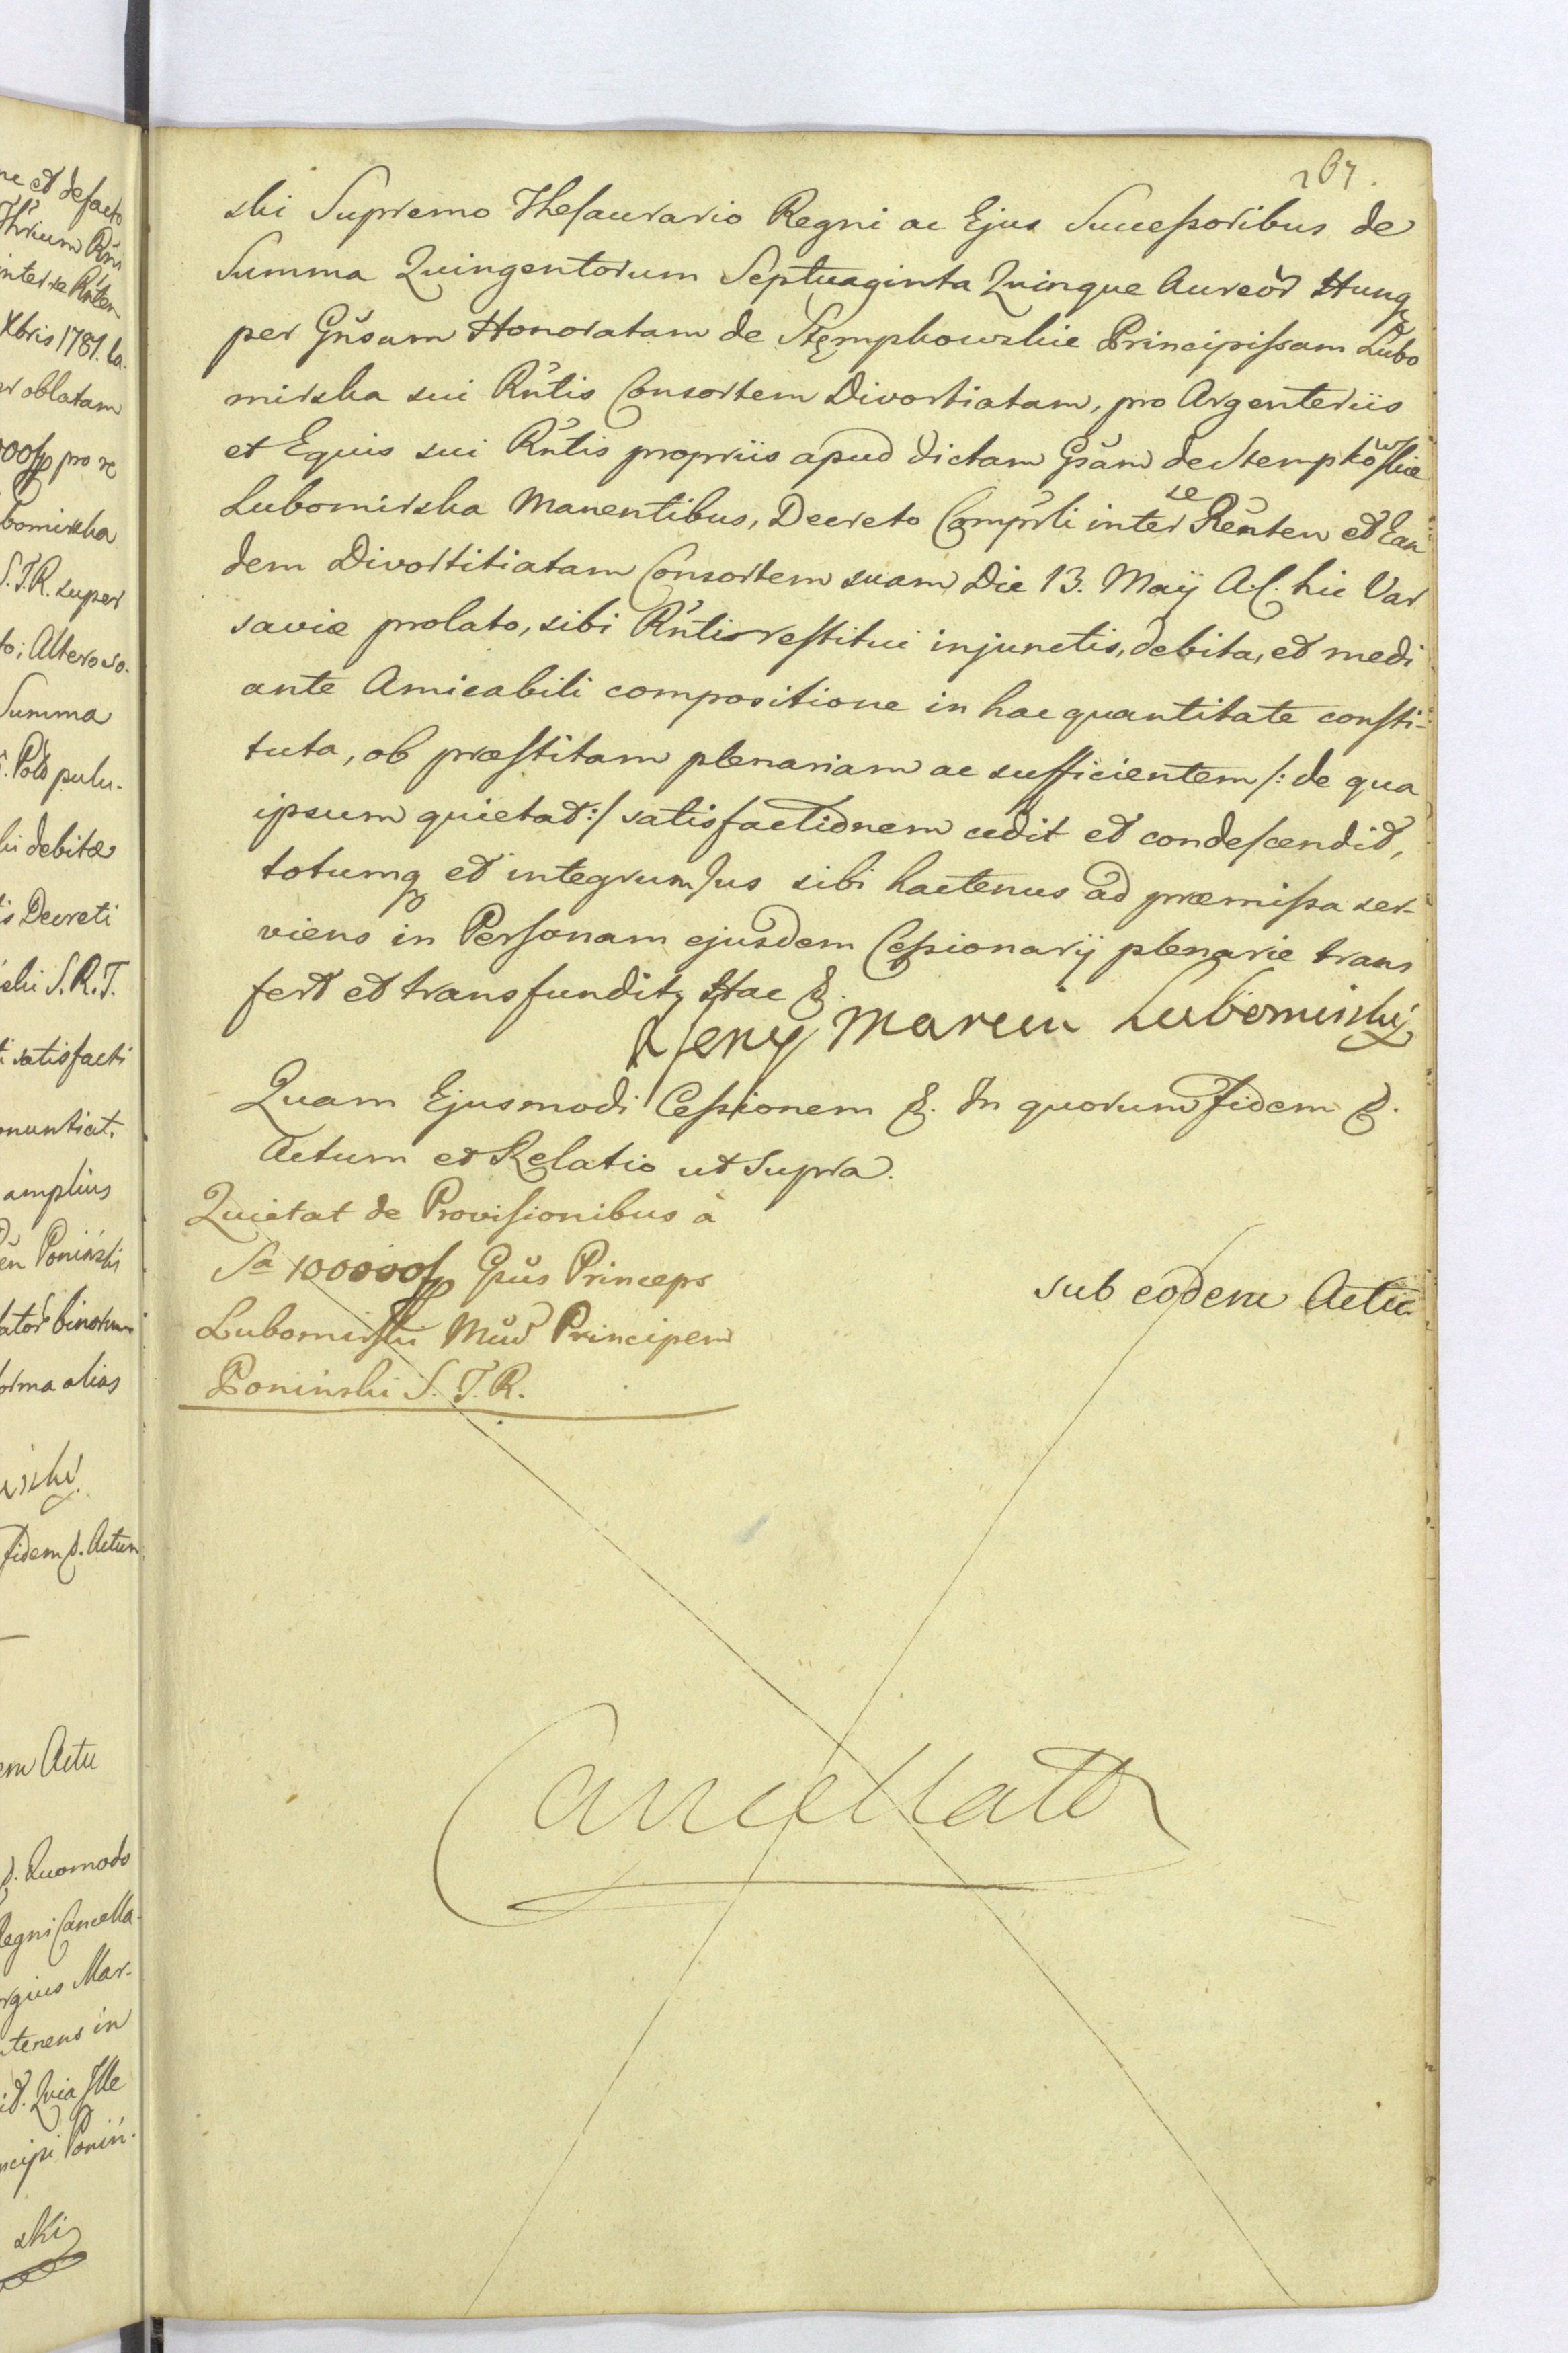 267.
ski Supremo Thesaurario Regni ac Ejus Successoribus de
Summa Quingentorum Septuaginta Quinque Aureor̃ Hung
per Gn̄sam Honoratam de Stęmpkowskie Principissam Lubo
mirska sui Rn̄tis Consortem Divortiatam, pro Argenteriis
et Equis sui Rn̄tis propriis apud dictam Gsam de Stempkowskie
Lubomirska Manentibus, Decreto Comp̄rli inter se Re͠nten et Ean
dem Divortitiatam Consortem suam Die 13. Maÿ A.C. hic Var
saviæ prolato, sibi Rn̄ti restitui injunctis, debita, et medi
ante Amicabili compositione in hac quantitate consti-
tuta, ob præstitam plenariam ac sufficientem /: de qua
ipsum quietat :/ satisfactionem cedit et condescendit,
totumq et integrum Jus sibi hactenus ad præmissa ser-
viens in Personam ejusdem Cessionarÿ plenarie trans
fert et transfundit, Hac &.
X Jerzy Marcin Lubomirsky
Quam Ejusmodi Cessionem &. In quorum fidem &.
Actum et Relatio ut Supra.
Quietat de Provisionibus à
Sa 100000f Gn̄s Princeps
Lubomirski Principem
Poninski S. T. R.
sub eodem Actu
Cancellat
ne et defacto
inter se Rn̄ten
Xbris 1781. la.
oblatam
pro re
bomirska
S. T. R. super
to; Altero vo.
Summa
pulu.
ki debitæ
is Decreti
ski S. R. T.
satisfacti
nuntiat.
amplius
Poniński
binorum
forma alias
irski
fidem &. Actum
em Actu
&. Quomodo
Regni Cancella-
rgius Mar-
tenens in
id. Quia Ille
ncipi Ponin-
ski